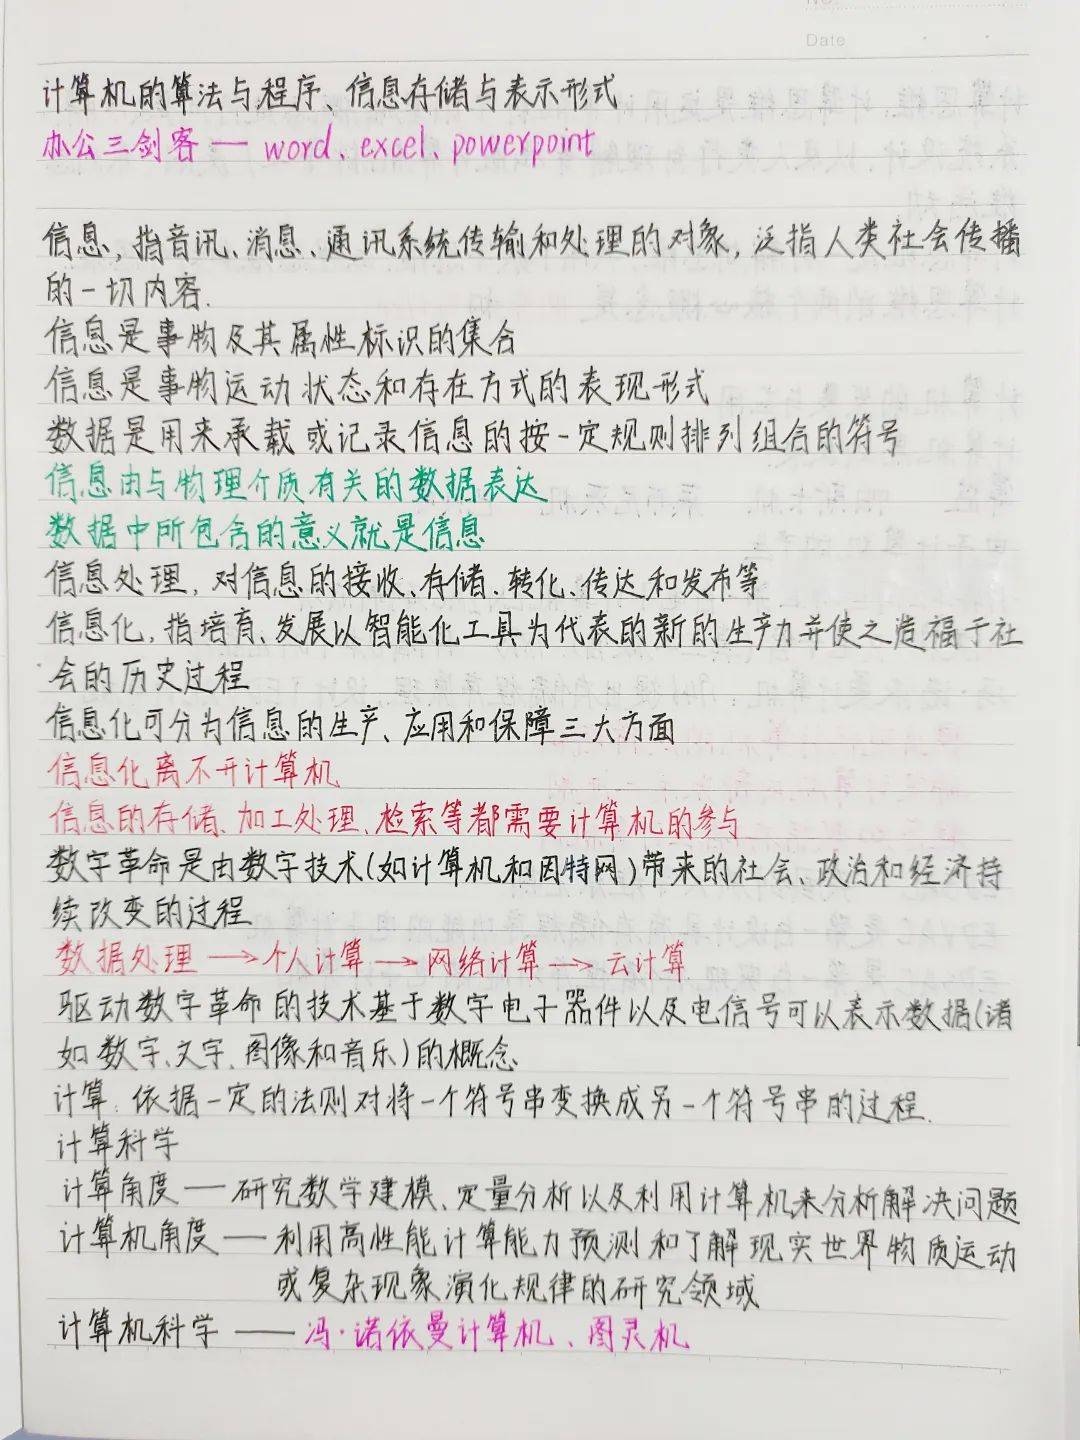 No
Date
计算机的算法与程序、信息存储与表示形式
办公三剑客 — word、excel、powerpoint
信息,指音讯、消息、通讯系统传输和处理的对象,泛指人类社会传播
的一切内容.
信息是事物及其属性标识的集合
信息是事物运动状态和存在方式的表现形式
数据是用来承载或记录信息的按一定规则排列组合的符号
信息由与物理介质有关的数据表达
数据中所包含的意义就是信息
信息处理,对信息的接收、存储、转化、传达和发布等
信息化,指培育、发展以智能化工具为代表的新的生产力并使之造福于社
会的历史过程
信息化可分为信息的生产、应用和保障三大方面
信息化离不开计算机
信息的存储、加工处理、检索等都需要计算机的参与
数字革命是由数字技术(如计算机和因特网)带来的社会、政治和经济持
续改变的过程
数据处理 → 个人计算 → 网络计算 → 云计算
驱动数字革命的技术基于数字电子器件以及电信号可以表示数据(诸
如数字、文字、图像和音乐)的概念
计算:依据一定的法则对将一个符号串变换成另一个符号串的过程.
计算科学
计算角度 — 研究数学建模、定量分析以及利用计算机来分析解决问题
计算机角度 — 利用高性能计算能力预测和了解现实世界物质运动
或复杂现象演化规律的研究领域
计算机科学 — 冯·诺依曼计算机、图灵机